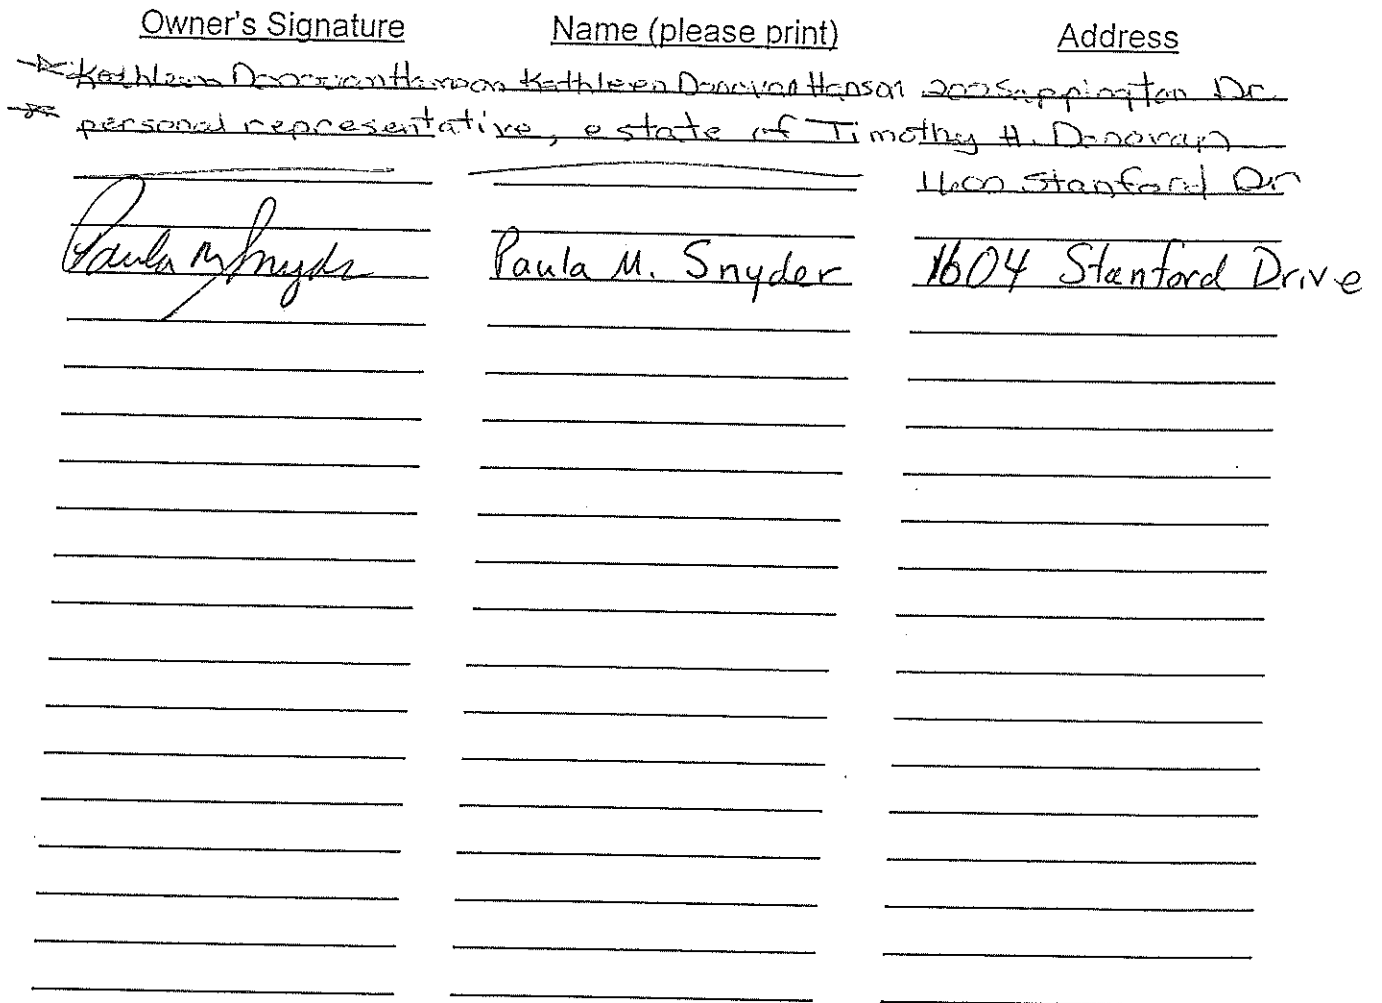 Owner's Signature Name (please print) Address
Kathleen Donovan Hanson Kathleen Donovan Hanson 200 Sappington Dr.
personal representative, estate of Timothy H. Donovan
1600 Stanford Dr
Paula M Snyder Paula M. Snyder 1604 Stanford Drive